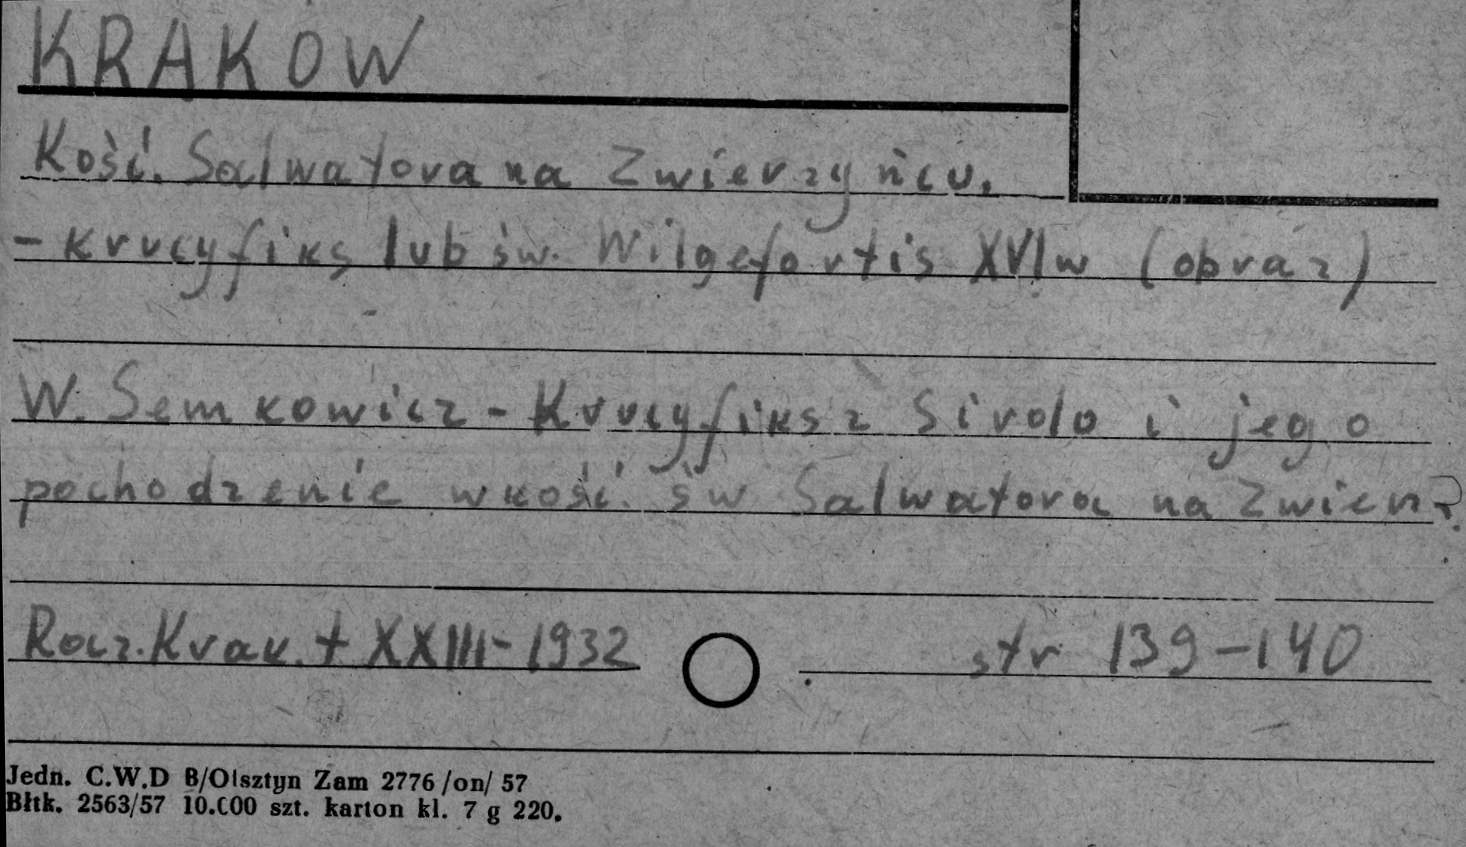 KRAKOW
Kość. Salwatora na Zwierzyńcu.
- krucyfiks lub św. Wilgefortis XVI w (obraz)
W. Semkowicz - Krucyfiks z Sirolo i jego
pochodzenie w kość. św Salwatora na Zwierz?
Rocz. Krak. t XXIII - 1932 str 139-140
Jedn. C.W.D B/Olsztyn Zam 2776 /on/ 57
Błtk. 2563/57 10.000 szt. karton kl. 7 g 220.